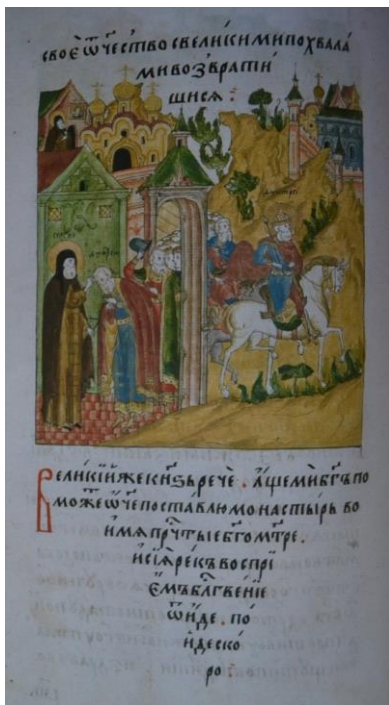 своѐ ѿч҃ество свели́кими похвала́
ми возврати́
шися :
Вели́кїй же кн҃ѕь речѐ . а́ще ми бг҃ъ по
мо́жеть ѿ́че поста́влю монасты́рь во
и́мя пречⷭ҇тыѧ бг҃ома́тре .
и сїѧ̀ ре́къ воспрїи́
е́мъ блгⷭ҇ве́нїе
ѿи́де . по
и́де ско́
ро :